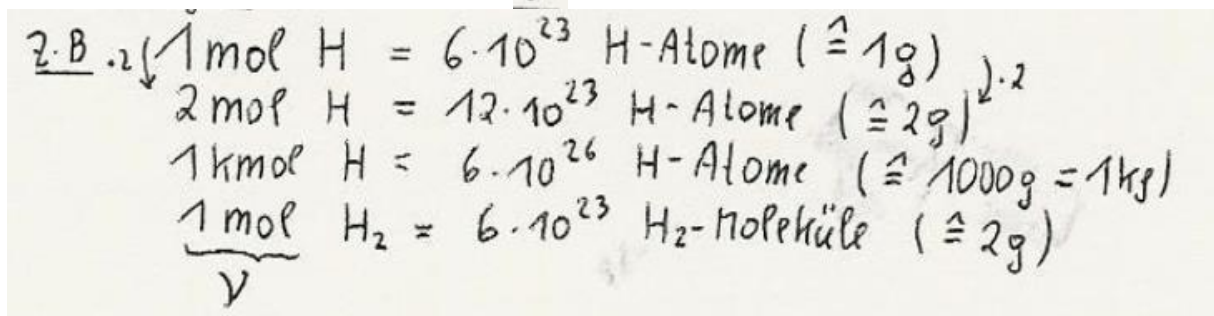 z.B. ·2 1 mol H = 6·10²³ H-Atome (≙ 1g)
2 mol H = 12·10²³ H-Atome (≙ 2g) ·2
1 kmol H = 6·10²⁶ H-Atome (≙ 1000g = 1kg)
1 mol H₂ = 6·10²³ H₂-Moleküle (≙ 2g)
ν